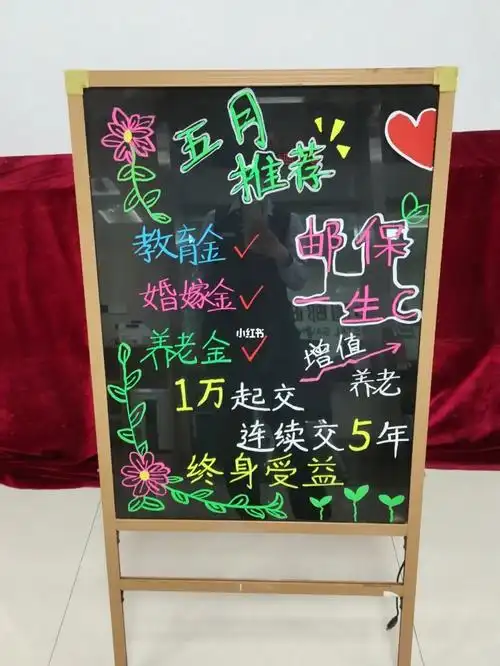 五月
推荐
教育金✓
婚嫁金✓
养老金✓
小红书
邮保
一生C
增值
养老
1万起交
连续交5年
终身受益